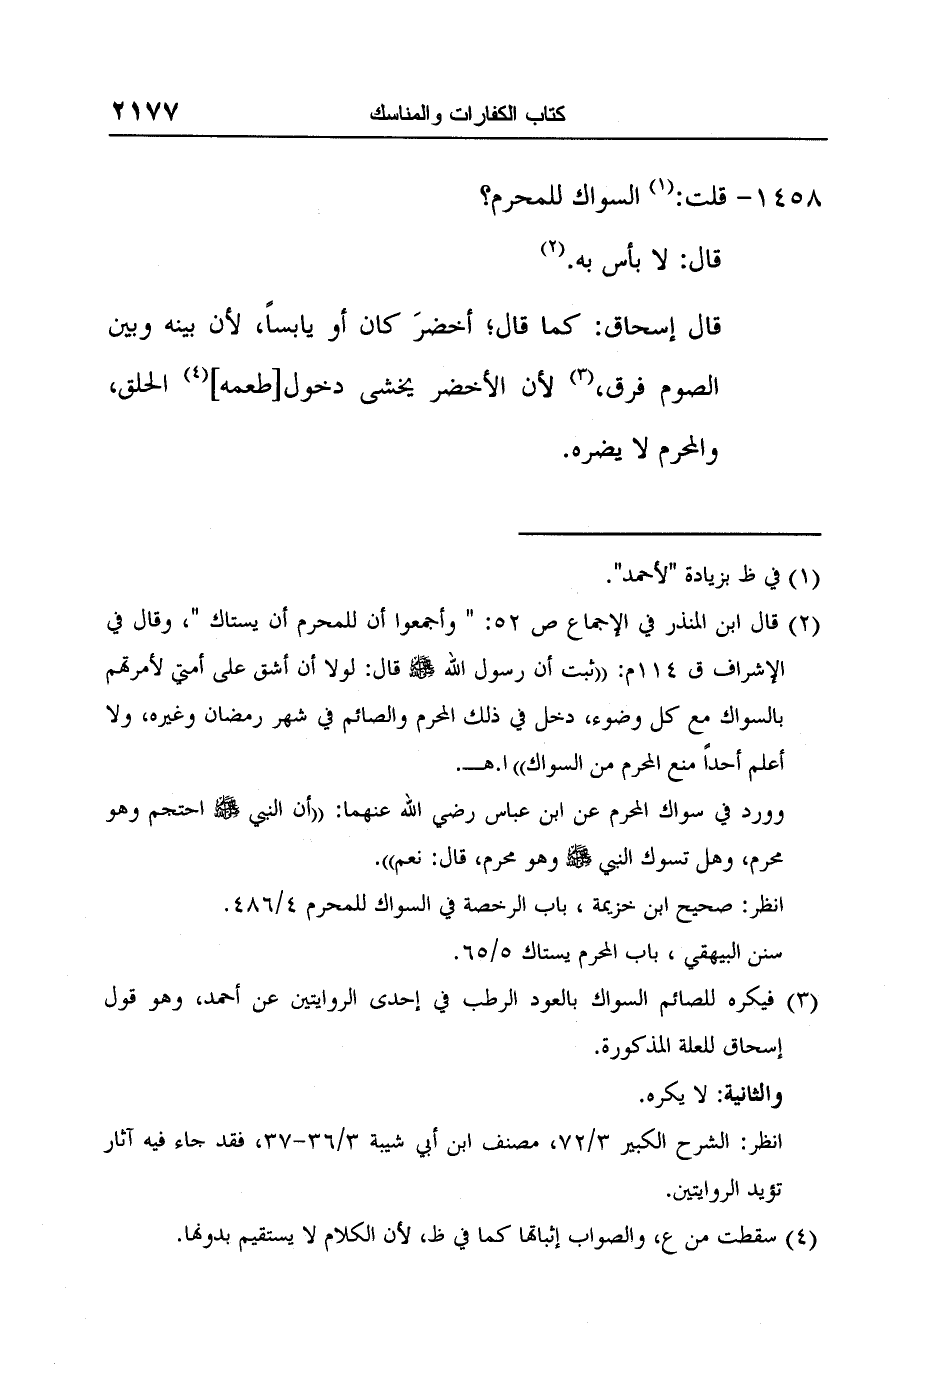 كتاب الكفارات والمناسك ٢١٧٧
١٤٥٨- قلت:(١) السواك للمحرم؟
قال: لا بأس به.(٢)
قال إسحاق: كما قال؛ أخضرَ كان أو يابساً، لأن بينه وبين
الصوم فرق،(٣) لأن الأخضر يخشى دخول[طعمه](٤) الحلق،
والمحرم لا يضره.
(١) في ظ بزيادة "لأحمد".
(٢) قال ابن المنذر في الإجماع ص ٥٢: " وأجمعوا أن للمحرم أن يستاك "، وقال في
الإشراف ق ١١٤م: ((ثبت أن رسول الله ﷺ قال: لولا أن أشق على أمتي لأمرتهم
بالسواك مع كل وضوء، دخل في ذلك المحرم والصائم في شهر رمضان وغيره، ولا
أعلم أحداً منع المحرم من السواك)) ا.هـ.
وورد في سواك المحرم عن ابن عباس رضي الله عنهما: ((أن النبي ﷺ احتجم وهو
محرم، وهل تسوك النبي ﷺ وهو محرم، قال: نعم)).
انظر: صحيح ابن خزيمة ، باب الرخصة في السواك للمحرم ٤٨٦/٤.
سنن البيهقي ، باب المحرم يستاك ٦٥/٥.
(٣) فيكره للصائم السواك بالعود الرطب في إحدى الروايتين عن أحمد، وهو قول
إسحاق للعلة المذكورة.
والثانية: لا يكره.
انظر: الشرح الكبير ٧٢/٣، مصنف ابن أبي شيبة ٣٦/٣-٣٧، فقد جاء فيه آثار
تؤيد الروايتين.
(٤) سقطت من ع، والصواب إثباتها كما في ظ، لأن الكلام لا يستقيم بدونها.